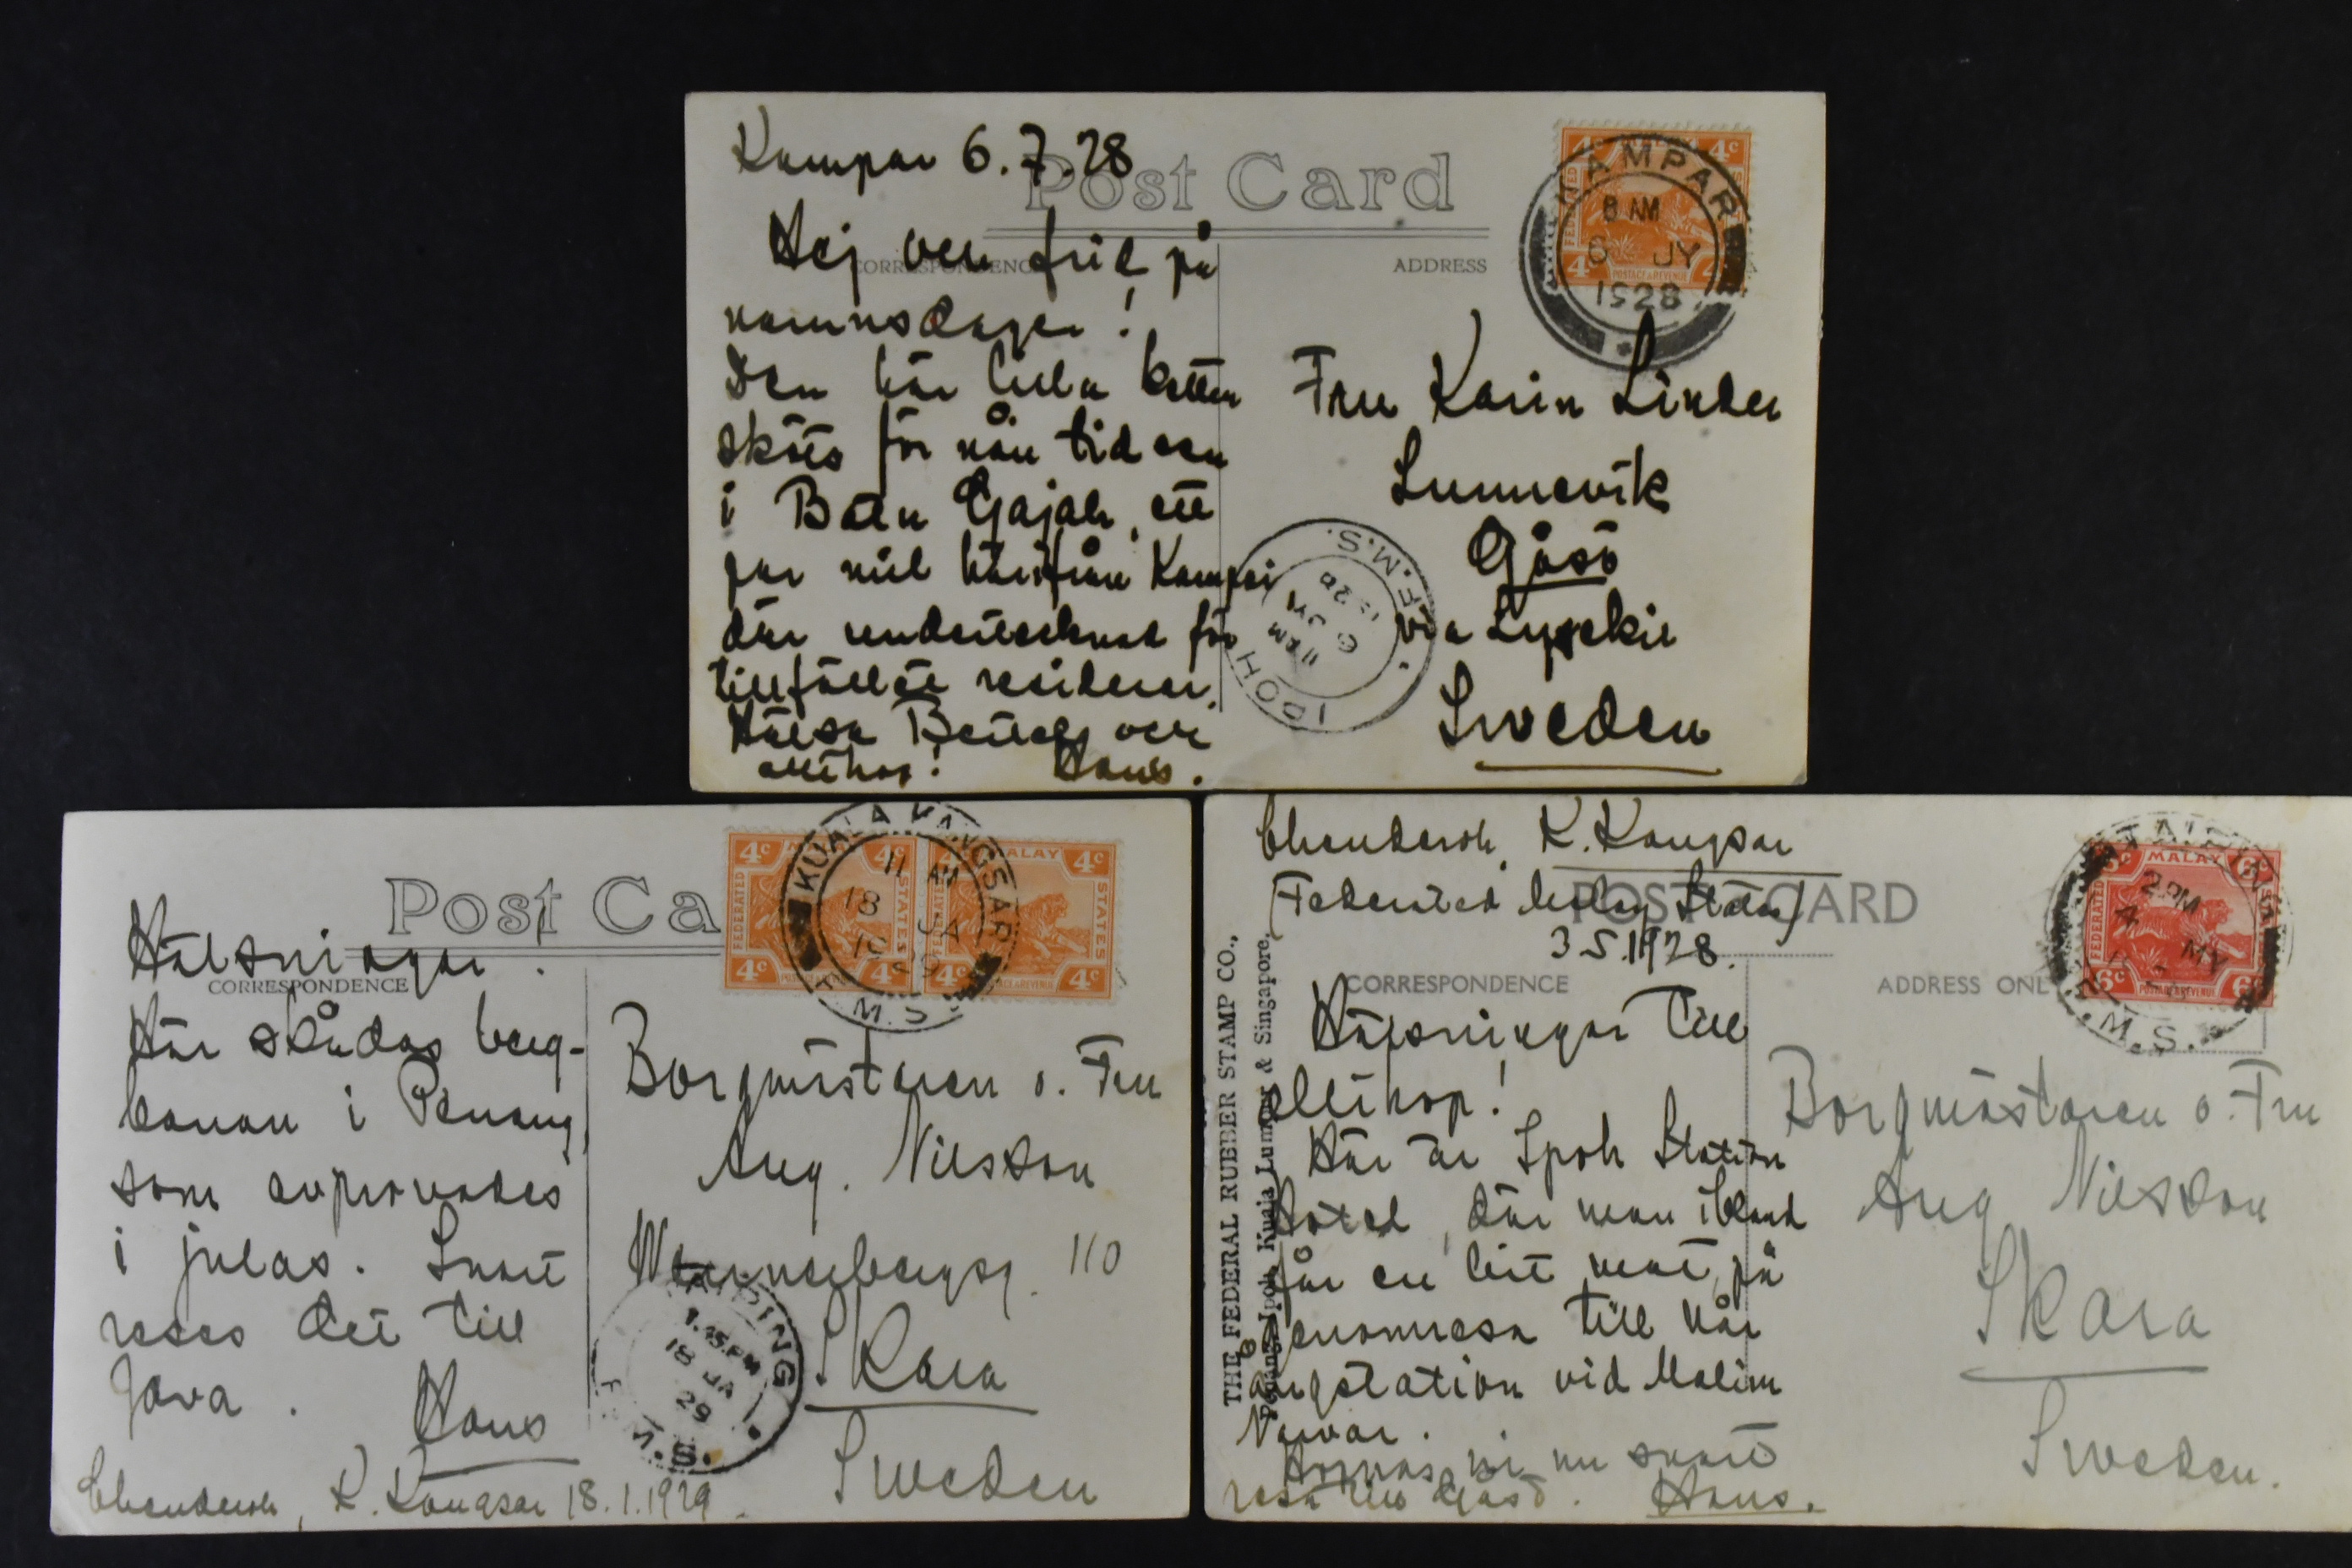 Kampar 6.7.28
Post Card
CORRESPONDENCE
ADDRESS
Hej och frid på
namnsdagen!
Den här lilla
sköts för nån tid sen
i Batu Gajah, ett
par mil härifrån Kampar
där undertecknad för
tillfället residerar.
Hälsa Bertel och
allihop! Hans.
4c 4c
FEDERATED
4c
POSTAGE & REVENUE
KAMPAR
8 AM
6 JY
1928
Fru Karin Linder
Lunnevik
Gåsö
via Lysekil
Sweden
IPOH F.M.S.
11 AM
6 JY
1928
Post Ca
CORRESPONDENCE
Hälsningar!
Här skådas berg-
banan i Penang,
som avprovades
i julas. Snart
reses det till
Java.
Hans
Chenderoh, K. Kangsar 18.1.1929.
4c 4c 4c MALAY 4c
FEDERATED STATES STATES
4c 4c 4c
KUALA KANGSAR
11 AM
18 JA
1929
F.M.S.
Borgmästaren o. Fru
Aug. Nilsson
110
Skara
Sweden
TAIPING
1.15 PM
18 JA
29
F.M.S.
Chenderoh, K. Kangsar
(Federated Malay States)
3.5.1928.
POST CARD
CORRESPONDENCE
ADDRESS ONLY
THE FEDERAL RUBBER STAMP CO.,
Penang, Ipoh, Kuala Lumpur & Singapore.
Hälsningar till
allihop!
Här är Ipoh Station
Hotel, där man ibland
får en bit mat, på
genomresa till vår
ångstation vid Malim
Nawar.
Hoppas ni nu snart
resa till Gåsö. Hans.
6c MALAY 6c
FEDERATED
6c POSTAGE & REVENUE 6c
TAIPING
2 PM
4 MY
F.M.S.
Borgmästaren o. Fru
Aug Nilsson
Skara
Sweden.